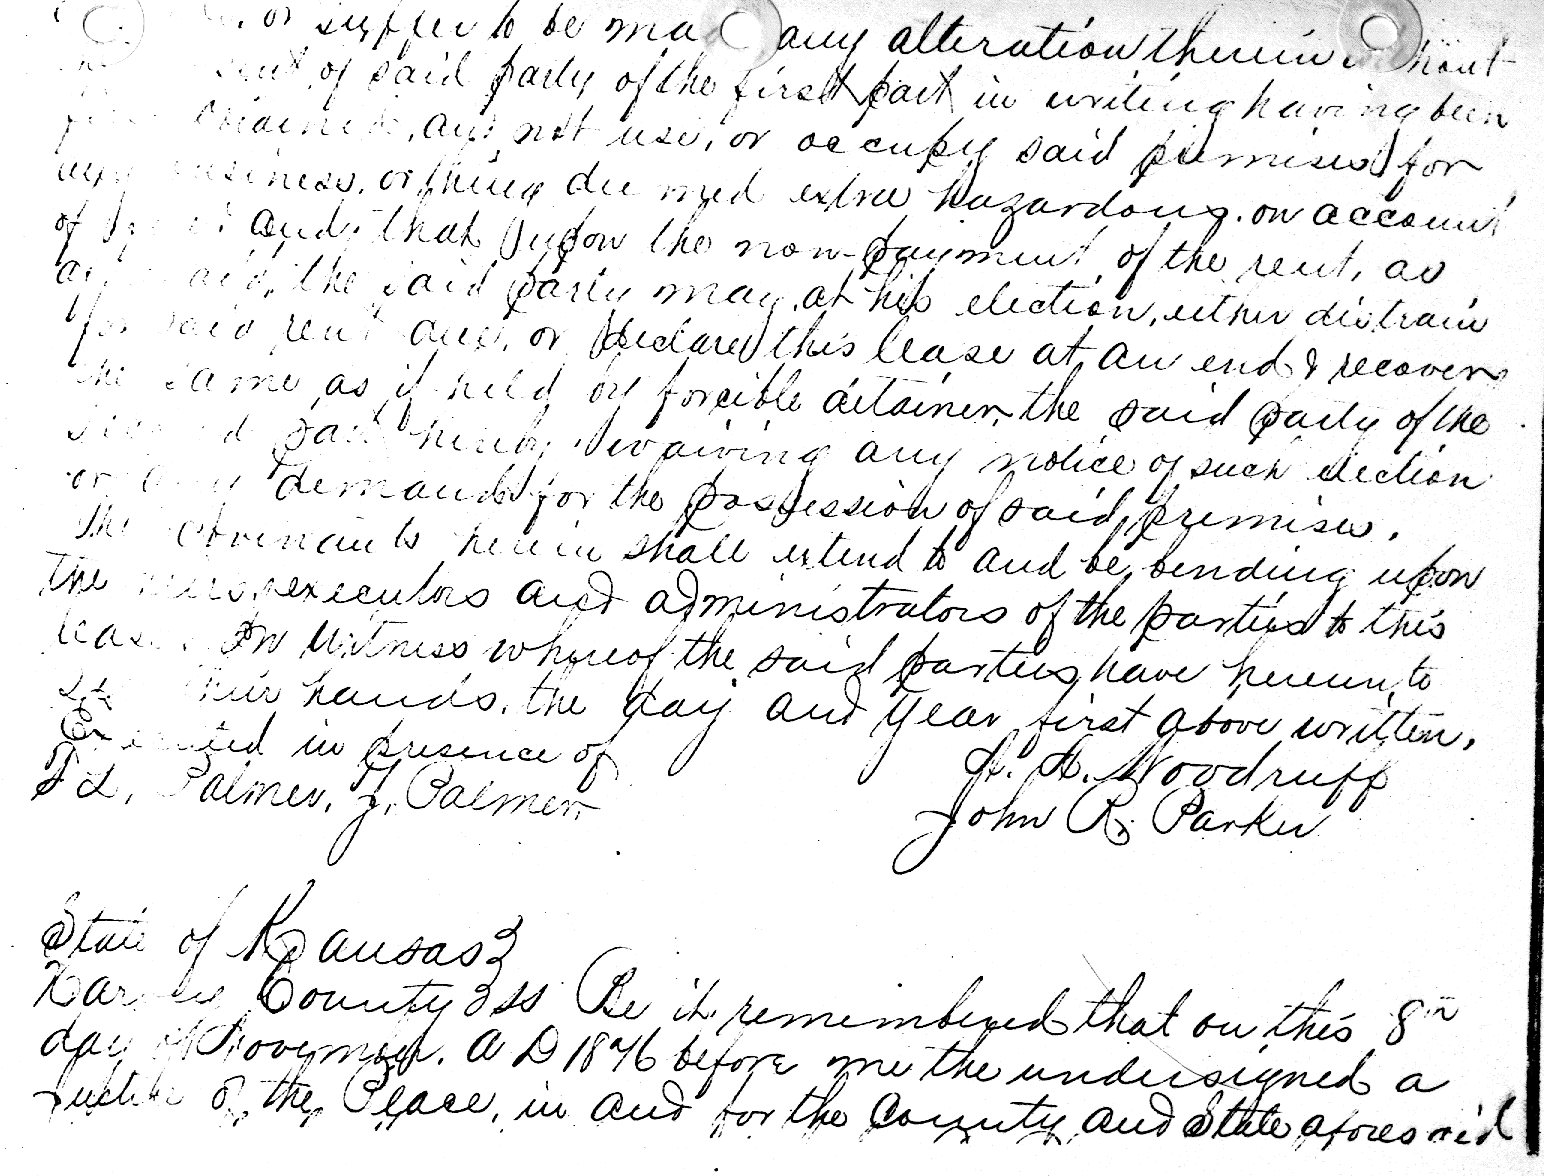 or suffer to be ma any alteration therein without
of said party of the first part in writing having been
obtained, and not use, or occupy said premises for
any business, or thing deemed extra hazardous, on account
of and that upon the non-payment of the rent, as
the said party may, at his election, either distrain
for said rent due, or declare this lease at an end & recover
the same, as if held by forcible detainer, the said party of the
second part hereby waiving any notice of such election
or any demand for the possession of said premises.
The covenants herein shall extend to and be binding upon
the heirs, executors and administrators of the parties to this
lease. In Witness whereof the said parties have hereunto
set their hands, the day and year first above written.
Executed in presence of
Palmer, J. Palmer
A. A. Woodruff
John R. Parker
State of Kansas
Harvey County ss Be it remembered that on this 8th
day of November. A D 1876 before me the undersigned a
Justice of the Peace, in and for the County and State aforesaid